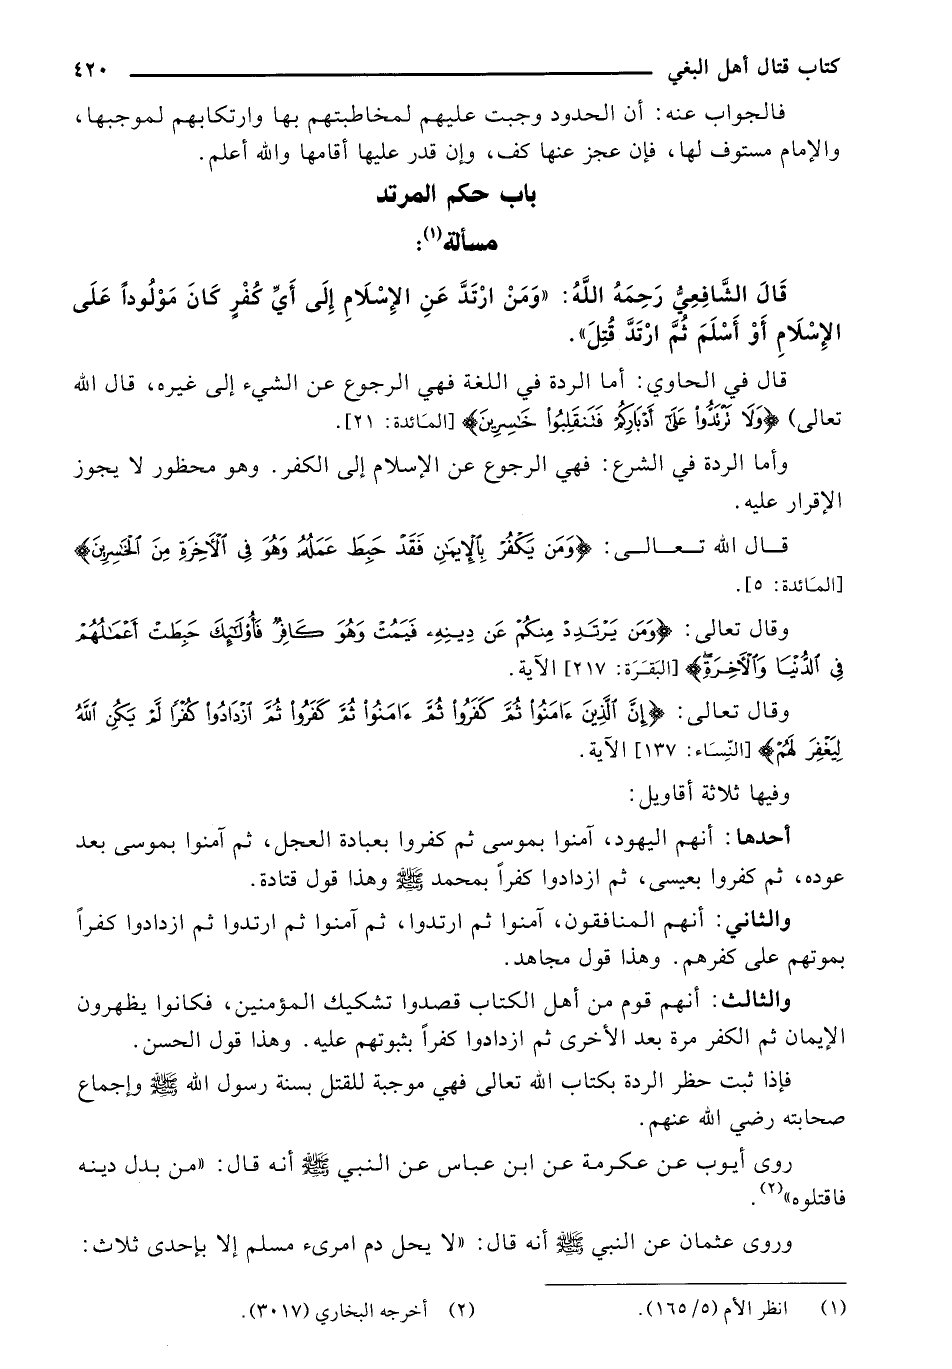 كتاب قتال أهل البغي ٤٢٠
فالجواب عنه: أن الحدود وجبت عليهم لمخاطبتهم بها وارتكابهم لموجبها،
والإمام مستوف لها، فإن عجز عنها كف، وإن قدر عليها أقامها والله أعلم.
باب حكم المرتد
مسألة(١):
قَالَ الشَّافِعِيُّ رَحِمَهُ اللَّهُ: «وَمَنْ ارْتَدَّ عَنِ الإِسْلَامِ إِلَى أَيِّ كُفْرٍ كَانَ مَوْلُوداً عَلَى
الإِسْلَامِ أَوْ أَسْلَمَ ثُمَّ ارْتَدَّ قُتِلَ».
قال في الحاوي: أما الردة في اللغة فهي الرجوع عن الشيء إلى غيره، قال الله
تعالى) ﴿وَلَا نَرْنَدُّوا عَلَىٰ أَدْبَارِكُمْ فَنَنقَلِبُوا خَٰسِرِينَ﴾ [المَائدة: ٢١].
وأما الردة في الشرع: فهي الرجوع عن الإسلام إلى الكفر. وهو محظور لا يجوز
الإقرار عليه.
قال الله تعالى: ﴿وَمَن يَكْفُرْ بِٱلْإِيمَٰنِ فَقَدْ حَبِطَ عَمَلُهُ وَهُوَ فِى ٱلْآخِرَةِ مِنَ ٱلْخَٰسِرِينَ﴾
[المَائدة: ٥].
وقال تعالى: ﴿وَمَن يَرْتَدِدْ مِنكُمْ عَن دِينِهِۦ فَيَمُتْ وَهُوَ كَافِرٌ فَأُوْلَٰٓئِكَ حَبِطَتْ أَعْمَٰلُهُمْ
فِى ٱلدُّنْيَا وَٱلْآخِرَةِۖ﴾ [البَقَرَة: ٢١٧] الآية.
وقال تعالى: ﴿إِنَّ ٱلَّذِينَ ءَامَنُوا ثُمَّ كَفَرُوا ثُمَّ ءَامَنُوا ثُمَّ كَفَرُوا ثُمَّ ٱزْدَادُوا كُفْرًا لَّمْ يَكُنِ ٱللَّهُ
لِيَغْفِرَ لَهُمْ﴾ [النِّسَاء: ١٣٧] الآية.
وفيها ثلاثة أقاويل:
أحدها: أنهم اليهود، آمنوا بموسى ثم كفروا بعبادة العجل، ثم آمنوا بموسى بعد
عوده، ثم كفروا بعيسى، ثم ازدادوا كفراً بمحمد ﷺ وهذا قول قتادة.
والثاني: أنهم المنافقون، آمنوا ثم ارتدوا، ثم آمنوا ثم ارتدوا ثم ازدادوا كفراً
بموتهم على كفرهم. وهذا قول مجاهد.
والثالث: أنهم قوم من أهل الكتاب قصدوا تشكيك المؤمنين، فكانوا يظهرون
الإيمان ثم الكفر مرة بعد الأخرى ثم ازدادوا كفراً بثبوتهم عليه. وهذا قول الحسن.
فإذا ثبت حظر الردة بكتاب الله تعالى فهي موجبة للقتل بسنة رسول الله ﷺ وإجماع
صحابته رضي الله عنهم.
روى أيوب عن عكرمة عن ابن عباس عن النبي ﷺ أنه قال: «من بدل دينه
فاقتلوه»(٢).
وروى عثمان عن النبي ﷺ أنه قال: «لا يحل دم امرىء مسلم إلا بإحدى ثلاث:
(١) انظر الأم (٥/ ١٦٥). (٢) أخرجه البخاري (٣٠١٧).